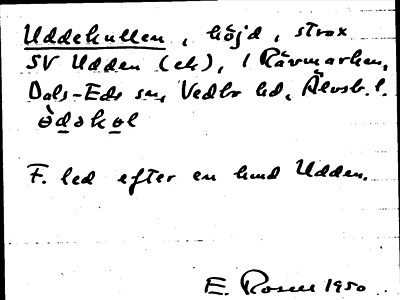 Uddekullen, höjd, strax
SV Udden (ek), i Rävmarken,
Dals-Eds sn, Vedbo hd, Älvsb. l.
ò̀dəkol
F. led efter en hund Udden.
E. Rosell 1950